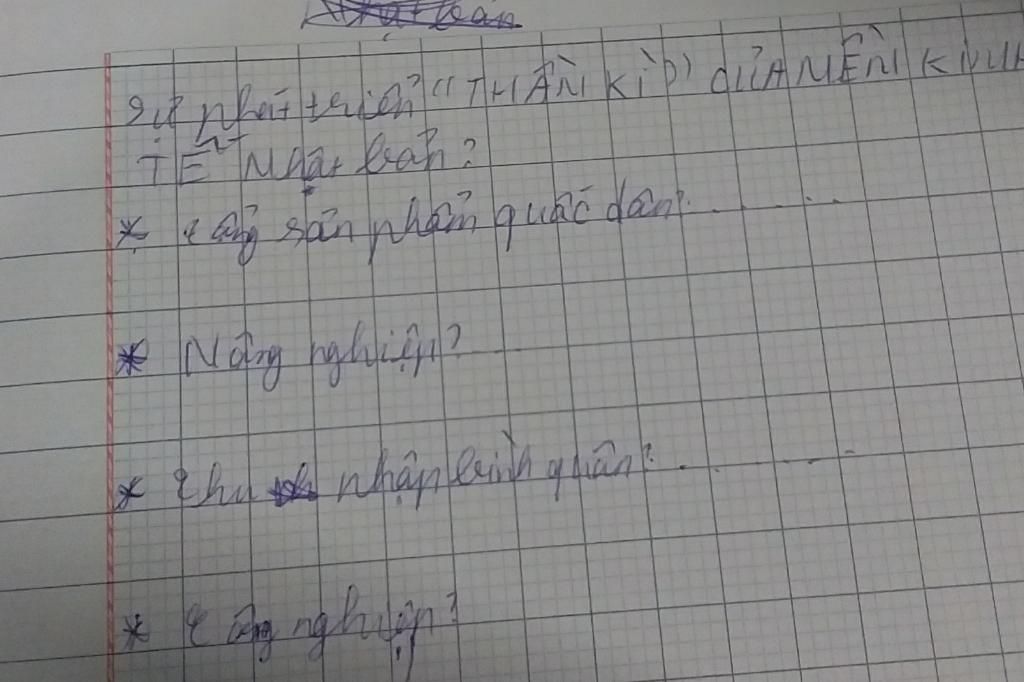 Sự phát triển "THẦN KÌ" CỦA NỀN KINH
TẾ Nhật bản?
* tổng sản phẩm quốc dân:..........
* Nông nghiệp?
* thu nhập bình quân:..........
* Công nghiệp?